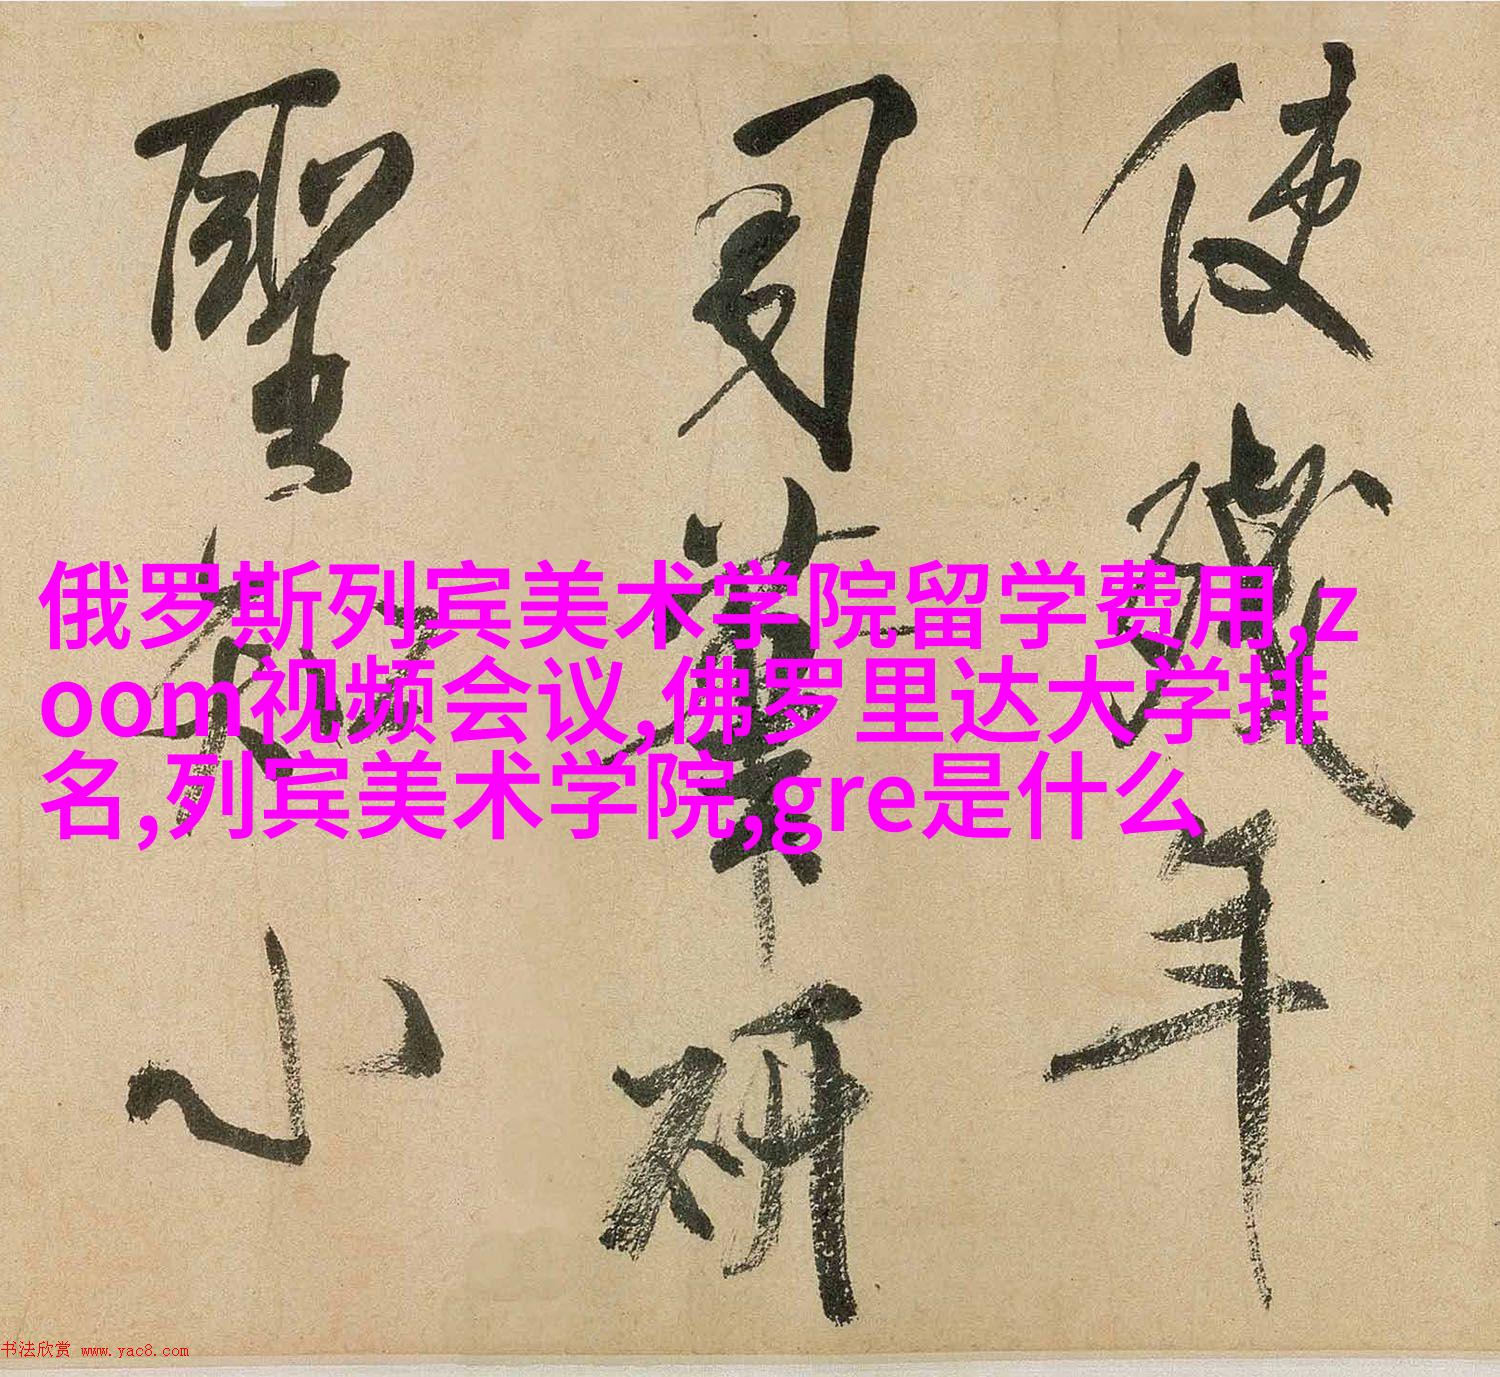 使残年
司笔研
圣知小
俄罗斯列宾美术学院留学费用,z
oom视频会议,佛罗里达大学排
名,列宾美术学院,gre是什么
书法欣赏 www.yac8.com